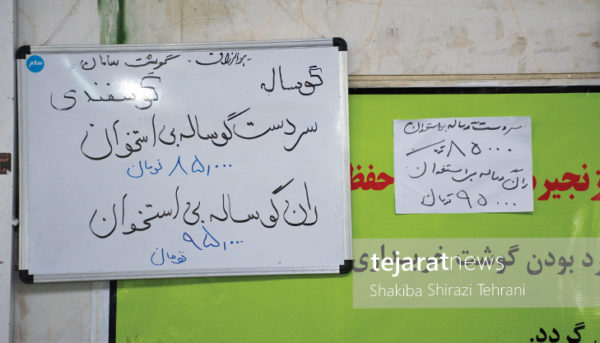 سلام
گوشت سامان
گوساله
گوسفندی
سردست گوساله بی استخوان
۸۵,۰۰۰ تومان
ران گوساله بی استخوان
۹۵,۰۰۰ تومان
سردست گوساله بی استخوان
۸۵۰۰۰ تومان
ران گوساله بی استخوان
۹۵۰۰۰ تومان
زنجیره
حفظ
رد بودن گوشت
ی گردد.
tejaratnews
Shakiba Shirazi Tehrani